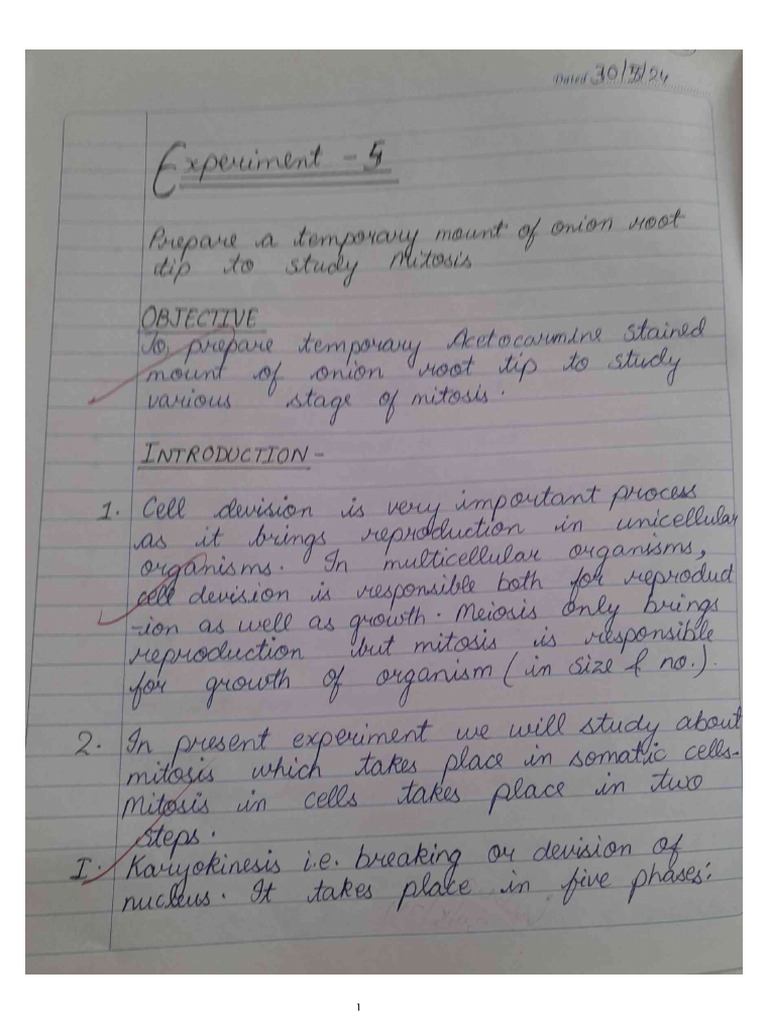 Dated 30/5/24
Experiment - 5
Prepare a temporary mount of onion root
tip to study Mitosis
OBJECTIVE
To prepare temporary Acetocarmine stained
mount of onion root tip to study
various stage of mitosis.
INTRODUCTION -
1. Cell devision is very important process
as it brings reproduction in unicellular
organisms. In multicellular organisms,
cell devision is responsible both for reproduct
-ion as well as growth. Meiosis only brings
reproduction but mitosis is responsible
for growth of organism (in size & no.).
2. In present experiment we will study about
mitosis which takes place in somatic cells.
Mitosis in cells takes place in two
steps.
I. Karyokinesis i.e. breaking or devision of
nucleus. It takes place in five phases:
1